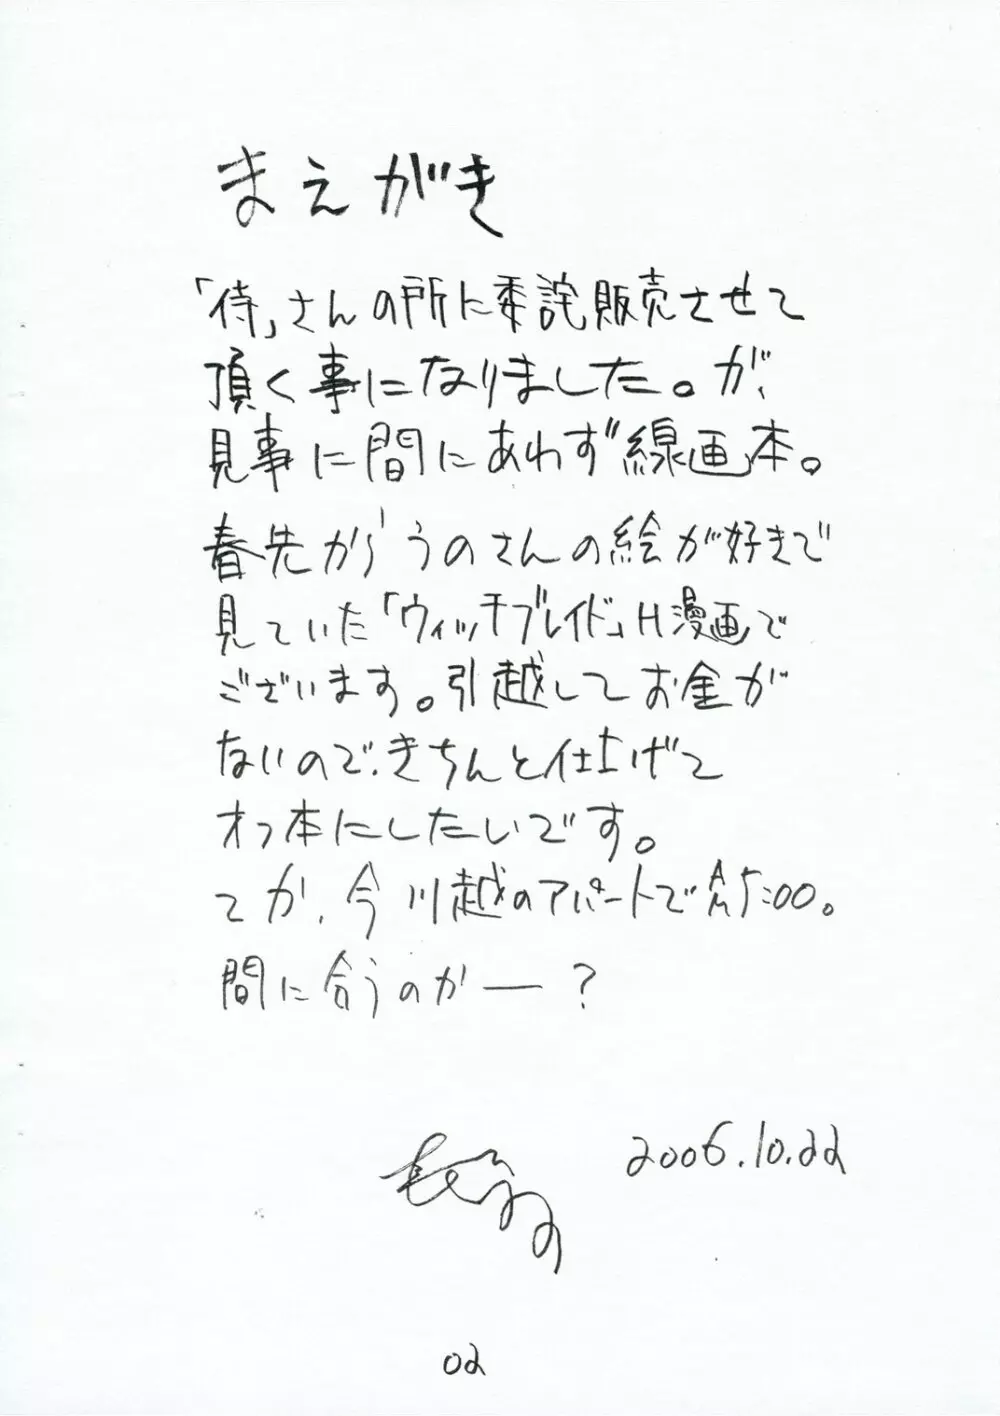 まえがき
「侍」さんの所に委託販売させて
頂く事になりました。が、
見事に間にあわず線画本。
春先からうのさんの絵が好きで
見ていた「ウィッチブレイド」H漫画で
ございます。引越してお金が
ないので、きちんと仕上げて
オフ本にしたいです。
てか、今川越のアパートでAM5:00。
間に合うのかー?
2006.10.22
02